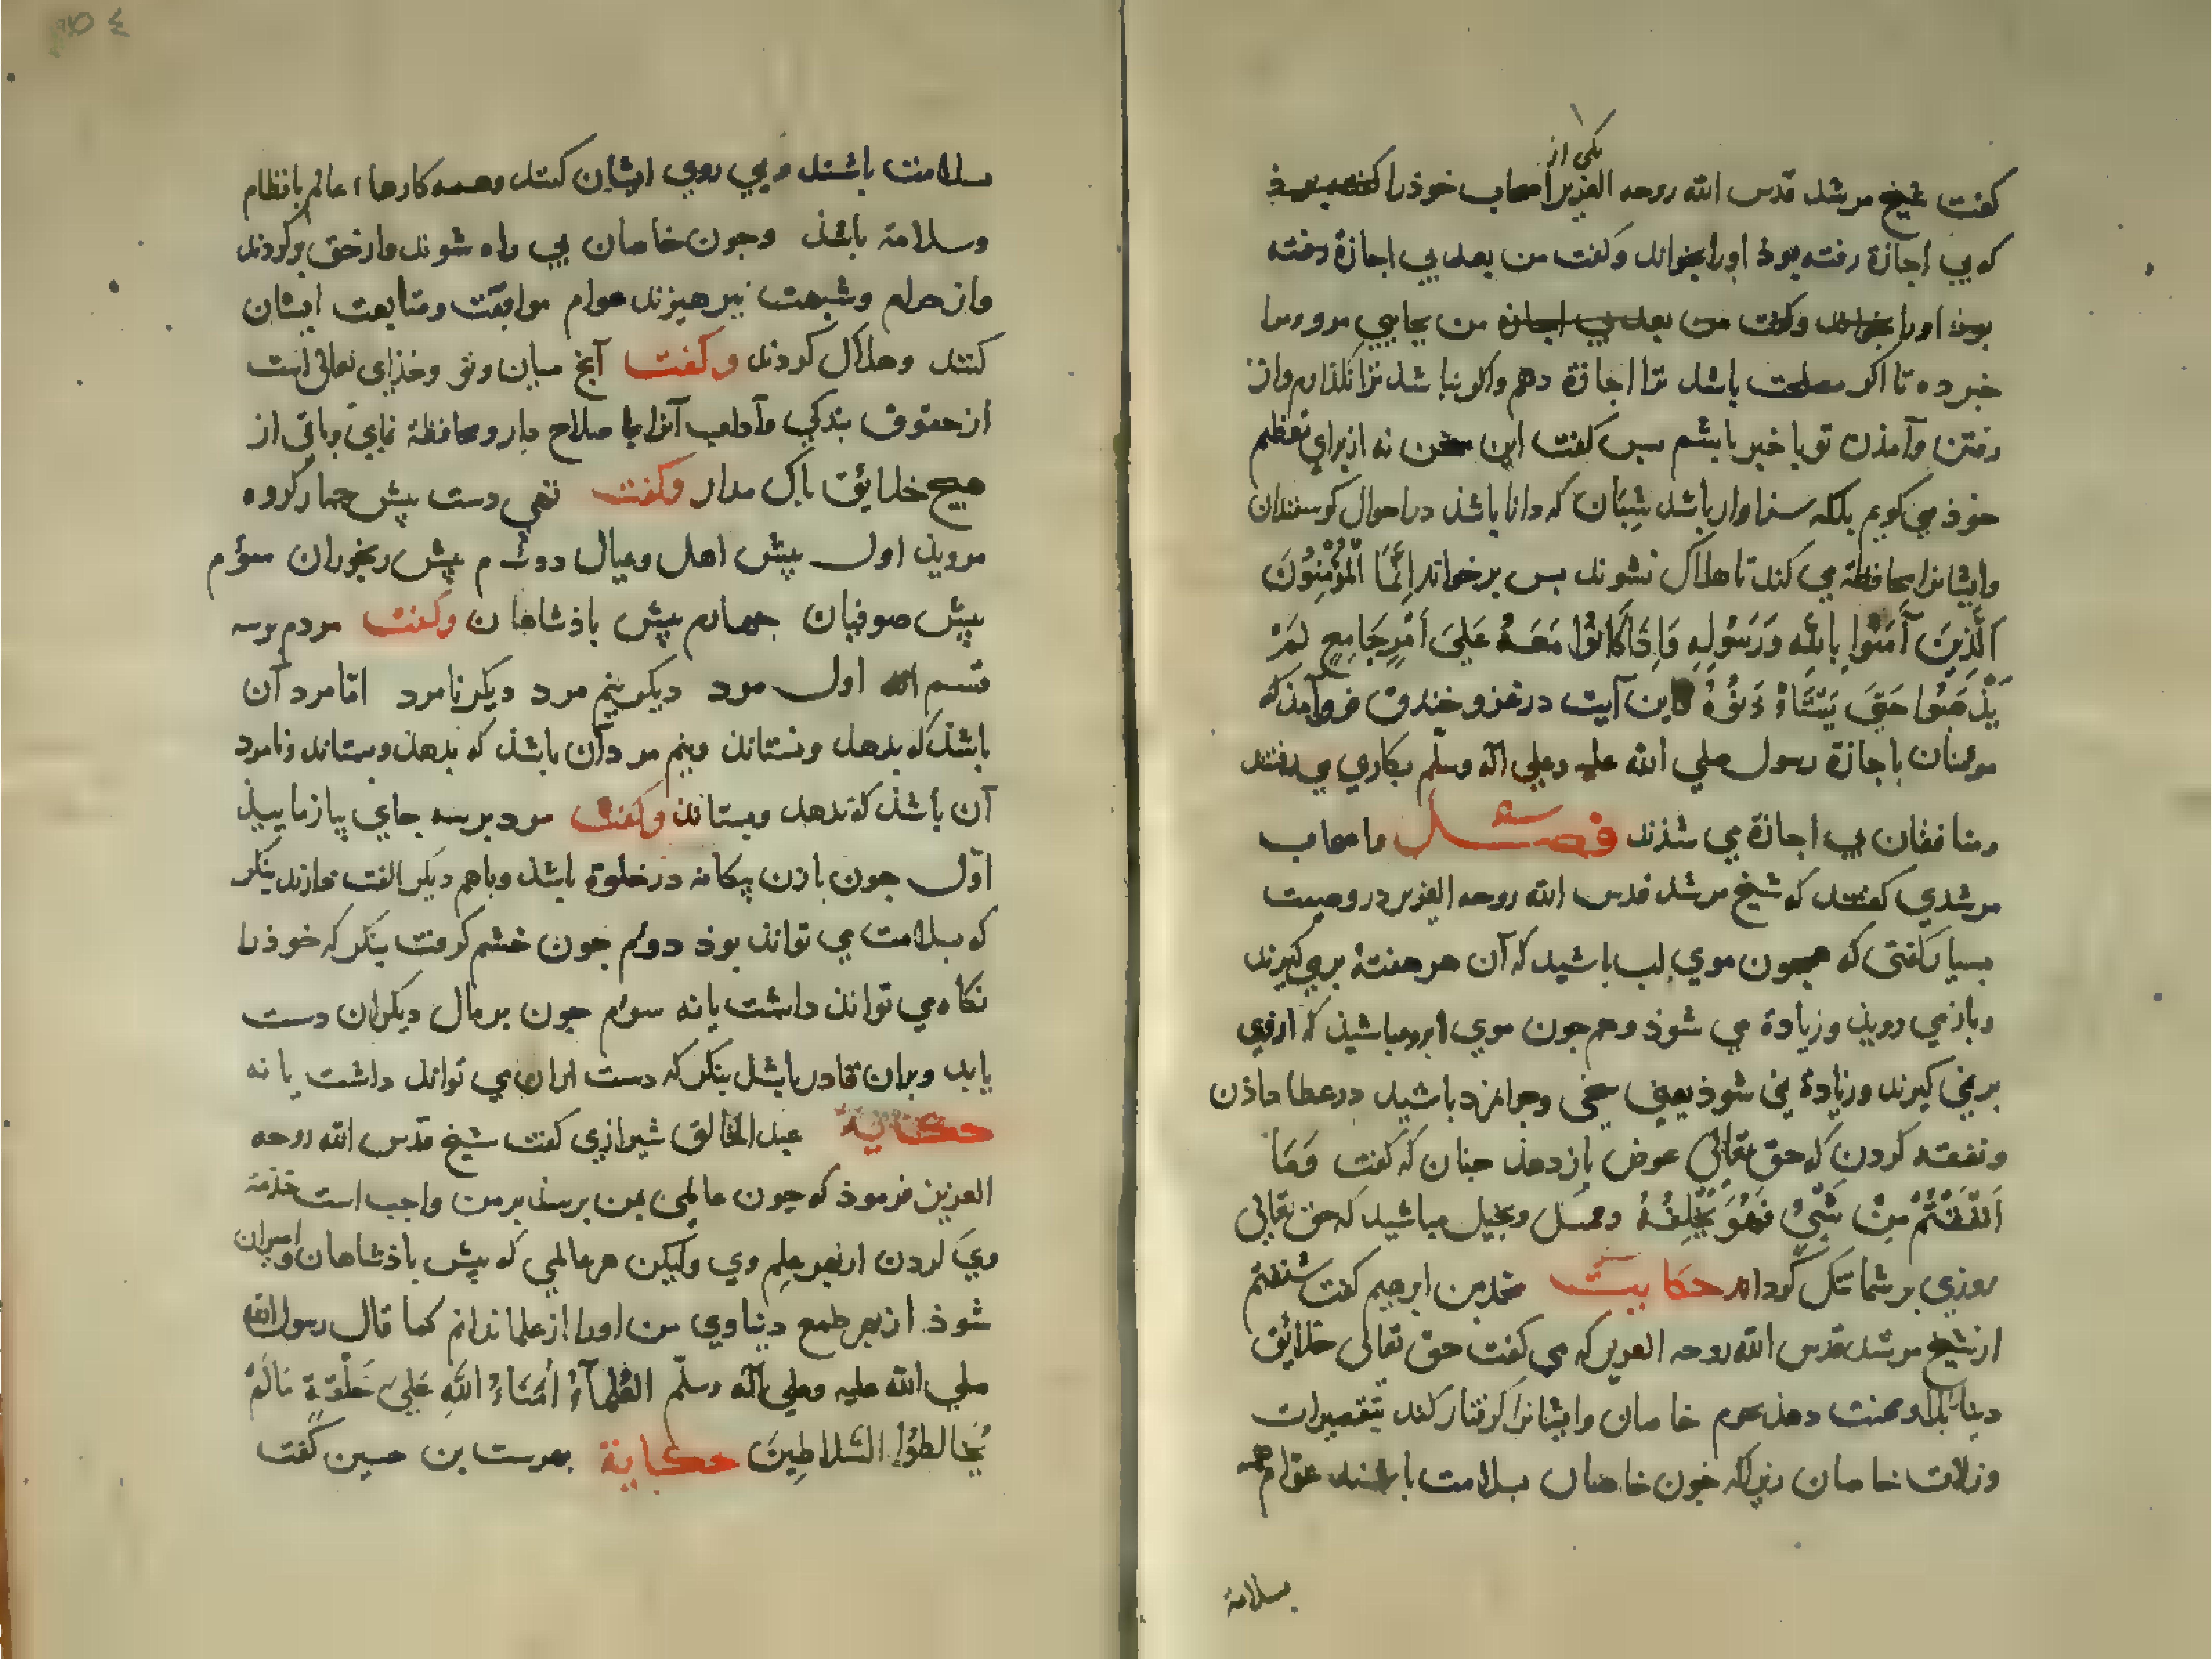 یکی از
کفت شیخ مرشد قدس الله روحه العزیز اصحاب خوذرا
که بی اجازة رفته بوذ اورا بخواند وکفت من بعد بی اجازة رفته
بوذ اورا بخواند وکفت من بعد بی اجازه من بجایی مرو ومرا
خبر ده تا اکر مصلحت باشد ترا اجازة دهم واکر نباشد ترا نکذارم واز
رفتن وآمذن تو با خبر باشم بس کفت این سخن نه از برای تعظیم
خوذ می کویم بلکه سزاوار باشد شبان که دانا باشد در احوال کوسفندان
وایشانرا محافظة می کند تا هلاک نشوند بس برخواند اِنَّمَا الْمُؤْمِنُونَ
اَلَّذِینَ آَمَنُوا بِاللهِ وَرَسُولِهِ وَاِذَا کَانُوا مَعَهُ عَلیَ اَمْرٍ جَامِعٍ لَمْ
یَذْهَبُوا حَتیَ یَسْتَاْذِنُوهُ این آیت در غزو خندق فرو آمذ که
مومنان باجازة رسول صلی الله علیه وعلی آله وسلّم بکاری می رفتند
ومنافقان بی اجازة می شذند فصل واصحاب
مرشدی کفتند که شیخ مرشد قدس الله روحه العزیز در وصیت
بسیار کفتی که همجون موی لب باشید که آن هر هفتهٔ بر می کیرند
وباز می رویذ وزیادة می شوذ وهم جون موی ابرو مباشیذ که ازوی
بر نمی کیرند وزیادة نمی شوذ یعنی سخی وجوامرد باشید در عطا داذن
ونفقه کردن که حق تعالی عوض باز دهذ جنان که کفت وَمَا
اَنْفَقْتُمْ مِنْ شَیْءٍ فَهُوَ یُخْلِفُهُ وممسک وبخیل مباشید که حق تعالی
روزی بر شما تنک کرداند حکایت محمد بن ابرهیم کفت شنفتم
از شیخ مرشد قدس الله روحه العزیز که می کفت حق تعالی خلایق
دنیا بلا ومحنت دهذ بجرم خاصان وایشانرا کرفتار کند بتقصیرات
وزلات خاصان زیراکه جون خاصان بسلامت باشند عوام همه
بسلامة
سلامت باشند و پی روی ایشان کنند وهمه کارهاء عالم بانظام
وسلامة باشذ وجون خاصان بی راه شوند واز حق بر کردند
واز حرام وشبهت نبرهیزند عوام موافقت ومتابعت ایشان
کنند وهلاک کردند وکفت آنج میان وتو وخذای تعالی است
از حقوق بندکی وآداب آنرا باصلاح دار ومحافظة نمای وباقی از
هیج خلایق باک مدار وکفت تهی دست بیش جهار کروه
مرویذ اول بیش اهل وعیال دوئم بیش رنجوران سوم
بیش صوفیان جهارم بیش باذشاهان وکفت مردم برسه
قسم اند اول مرد دیکر نیم مرد دیکر نامرد اما مرد آن
باشذ که بدهذ ونستاند ونیم مرد آن باشذ که بدهذ وبستاند ونامرد
آن باشذ که ندهد وبستاند وکفت مرد برسه جای بیازماییذ
اول جون با زن بیکانه در خلوة باشد وباهم دیکر الفت دارند بنکر
که بسلامت می تواند بوذ دوم جون خشم کرفت بنکر که خوذرا
نکاه می تواند داشت یا نه سوم جون بر مال دیکران دست
یابد وبران قادر باشد بنکر که دست ازان می تواند داشت یا نه
حکایة عبد الخالق شیرازی کفت شیخ قدس الله روحه
العزیز فرموذ که جون عالمی بمن برسد بر من واجب است خدمة
وی کردن از بهر علم وی ولیکن هر عالمی که بیش باذشاهان وامیران
شوذ از بهر طمع دنیاوی من اورا از علما ندانم کما قال رسول الله
صلی الله علیه وعلی آله وسلّم العُلماَءُ اُمَنَاءُ اللهِ عَلیَ خَلْقِهِ مَالَمْ
یُخَالطُوا السَّلاطِینَ حکایة بهرست بن حسین کفت